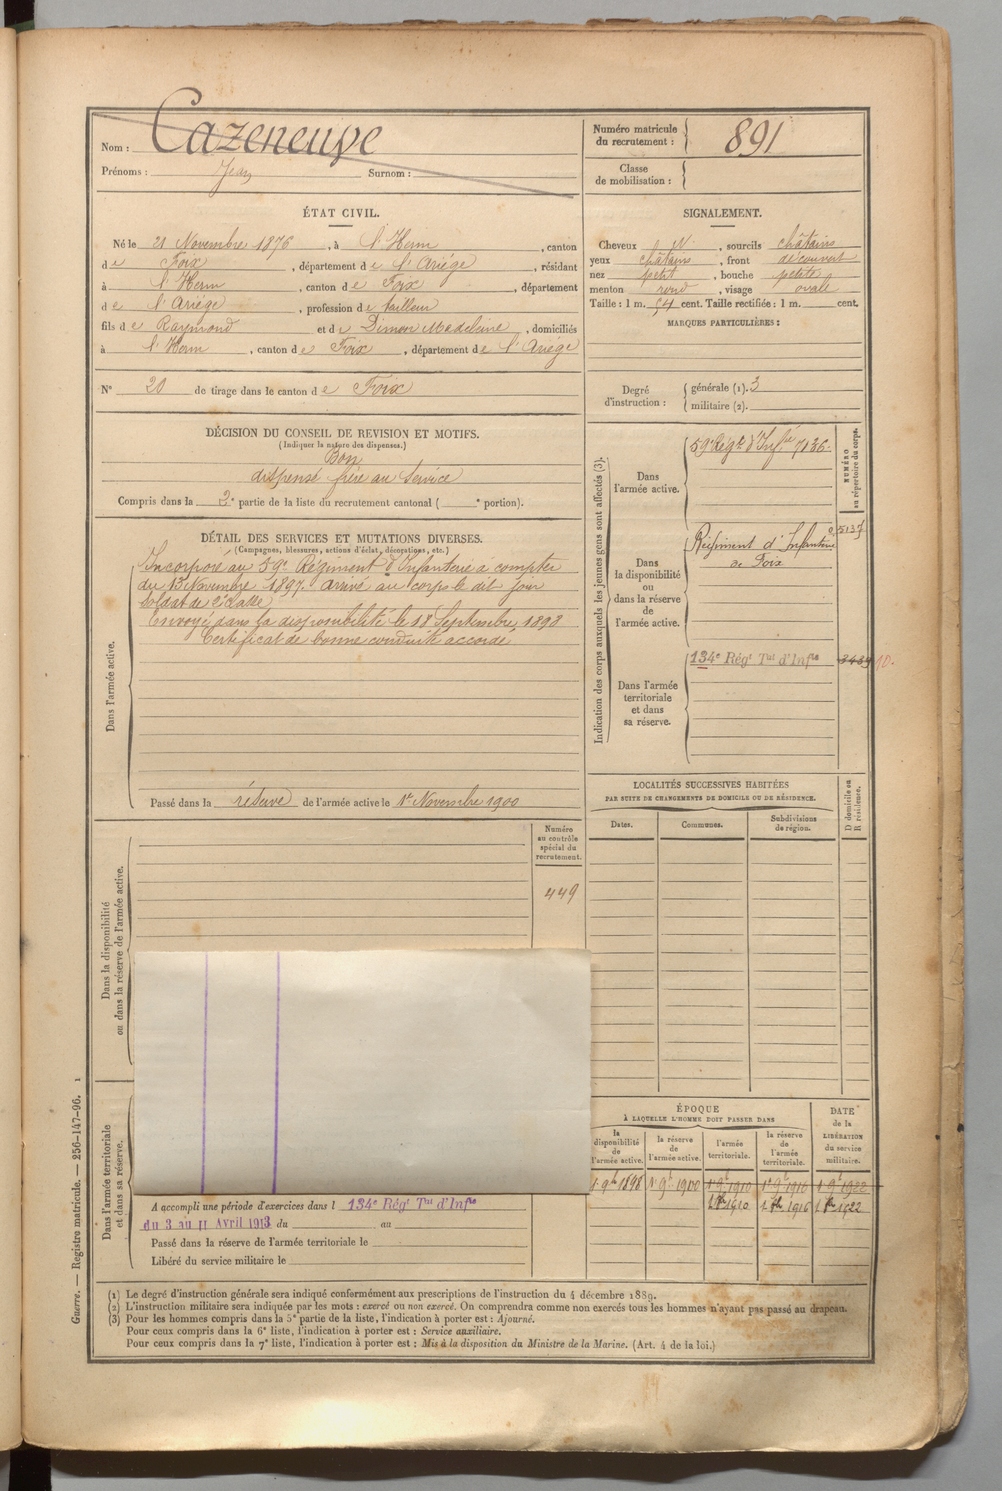 Nom : Cazeneuve
Prénoms : Jean Surnom :
Numéro matricule du recrutement : 891
Classe de mobilisation :
ÉTAT CIVIL.
Né le 21 Novembre 1876, à l'Herm, canton
de Foix, département de l'Ariége, résidant
à l'Herm, canton de Foix, département
de l'Ariége, profession de tailleur
fils de Raymond et de Dimon Madeleine, domiciliés
à l'Herm, canton de Foix, département de l'Ariége
N° 20 de tirage dans le canton de Foix
SIGNALEMENT.
Cheveux N, sourcils châtains
yeux châtains, front découvert
nez petit, bouche petite
menton rond, visage ovale
Taille : 1 m. 54 cent. Taille rectifiée : 1 m. cent.
MARQUES PARTICULIÈRES :
Degré d'instruction : générale (1). 3
militaire (2).
DÉCISION DU CONSEIL DE REVISION ET MOTIFS.
(Indiquer la nature des dispenses.)
Bon
dispensé frère au service
Compris dans la 2e partie de la liste du recrutement cantonal ( e portion).
DÉTAIL DES SERVICES ET MUTATIONS DIVERSES.
(Campagnes, blessures, actions d'éclat, décorations, etc.)
Dans l'armée active.
Incorporé au 59e Régiment d'Infanterie à compter
du 13 Novembre 1897. arrivé au corps le dit jour
soldat de 2e classe
Envoyé dans la disponibilité le 18 Septembre 1898
Certificat de bonne conduite accordé
Passé dans la réserve de l'armée active le 1er Novembre 1900
Indication des corps auxquels les jeunes gens sont affectés (3).
NUMÉRO au répertoire du corps.
Dans l'armée active.
59e Régt d'Infie 7136
Dans la disponibilité ou dans la réserve de l'armée active.
Régiment d'Infanterie
de Foix
Dans l'armée territoriale et dans sa réserve.
134e Régt Tal d'Infie
LOCALITÉS SUCCESSIVES HABITÉES
PAR SUITE DE CHANGEMENTS DE DOMICILE OU DE RÉSIDENCE.
D domicile ou R résidence.
Dates.
Communes.
Subdivisions de région.
Numéro au contrôle spécial du recrutement.
449
Dans la disponibilité ou dans la réserve de l'armée active.
Dans l'armée territoriale et dans sa réserve.
A accompli une période d'exercices dans l 134e Régt Tal d'Infie
du 3 au 11 Avril 1913 du au
Passé dans la réserve de l'armée territoriale le
Libéré du service militaire le
ÉPOQUE
À LAQUELLE L'HOMME DOIT PASSER DANS
la disponibilité de l'armée active.
la réserve de l'armée active.
l'armée territoriale.
la réserve de l'armée territoriale.
DATE de la LIBÉRATION du service militaire.
1 9bre 1898 1er 9bre 1900 1er 9bre 1910 1er 9bre 1916 1er 9bre 1922
1910 1916 1922
(1) Le degré d'instruction générale sera indiqué conformément aux prescriptions de l'instruction du 4 décembre 1889.
(2) L'instruction militaire sera indiquée par les mots : exercé ou non exercé. On comprendra comme non exercés tous les hommes n'ayant pas passé au drapeau.
(3) Pour les hommes compris dans la 5e partie de la liste, l'indication à porter est : Ajourné.
Pour ceux compris dans la 6e liste, l'indication à porter est : Service auxiliaire.
Pour ceux compris dans la 7e liste, l'indication à porter est : Mis à la disposition du Ministre de la Marine. (Art. 4 de la loi.)
Guerre. — Registre matricule. — 256-147-96. 1